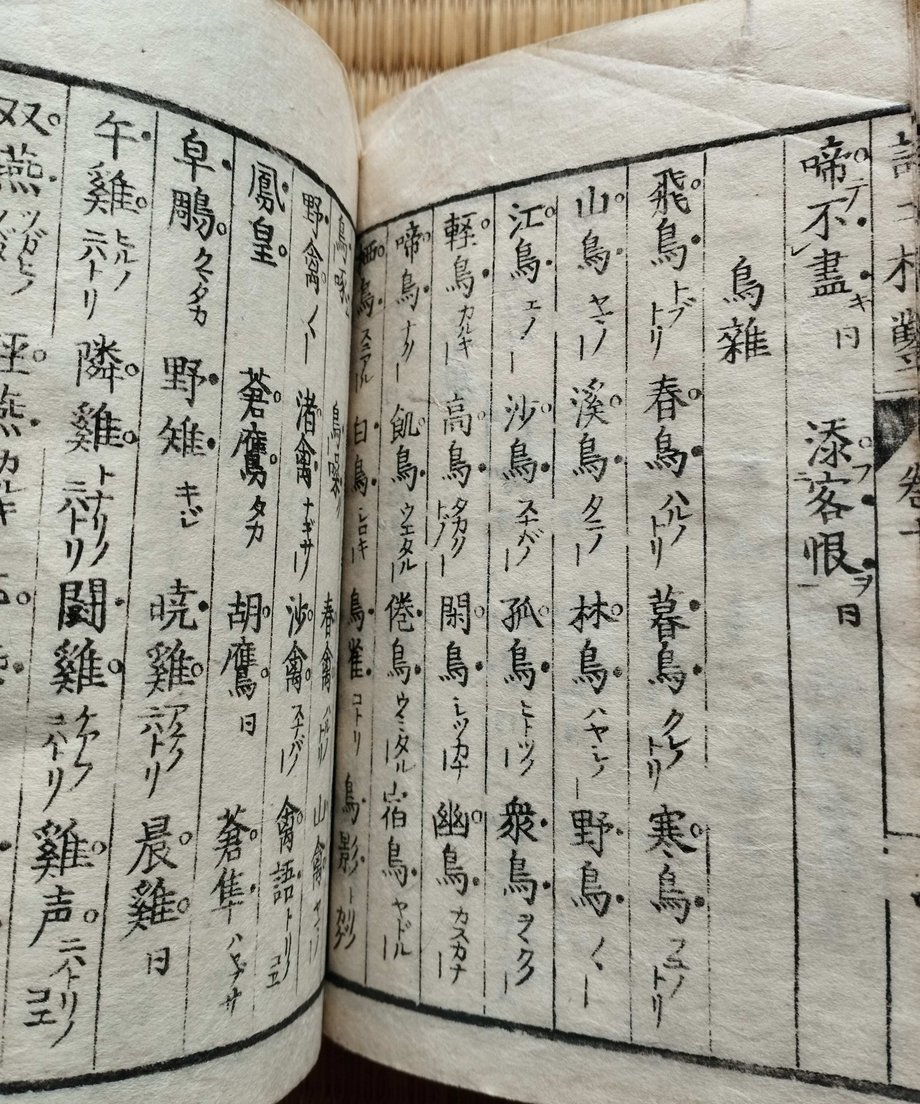 啼テ不盡キ日 添フ客恨ヲ日
鳥雜
飛鳥トブトリ 春鳥ハルノトリ 暮鳥クレノトリ 寒鳥フユノトリ
山鳥ヤマノ｜ 溪鳥タニノ｜ 林鳥ハヤシノ｜ 野鳥〱｜
江鳥エノ｜ 沙鳥スナガノ｜ 孤鳥ヒトツノ｜ 衆鳥ヲヽクノ｜
軽鳥カルキ｜ 高鳥タカクトブ｜ 閑鳥シツカナ｜ 幽鳥カスカナ｜
啼鳥ナク｜ 飢鳥ウエタル｜ 倦鳥ウミタル｜ 宿鳥ヤドル｜
栖鳥 白鳥シロキ｜ 鳥雀コトリ 鳥影トリノカゲ
鳥啄 鳥噪 春禽 山禽
野禽〱｜ 渚禽ナギサノ｜ 沙禽 禽語トリノコエ
鳳皇 蒼鷹タカ 胡鷹日 蒼隼ハヤブサ
皁鵰クマタカ 野雉キジ 暁雞アカツキノニハトリ 晨雞日
午雞ヒルノニハトリ 隣雞トナリノニハトリ 闘雞ケアフニハトリ 雞声ニハトリノコエ
双燕